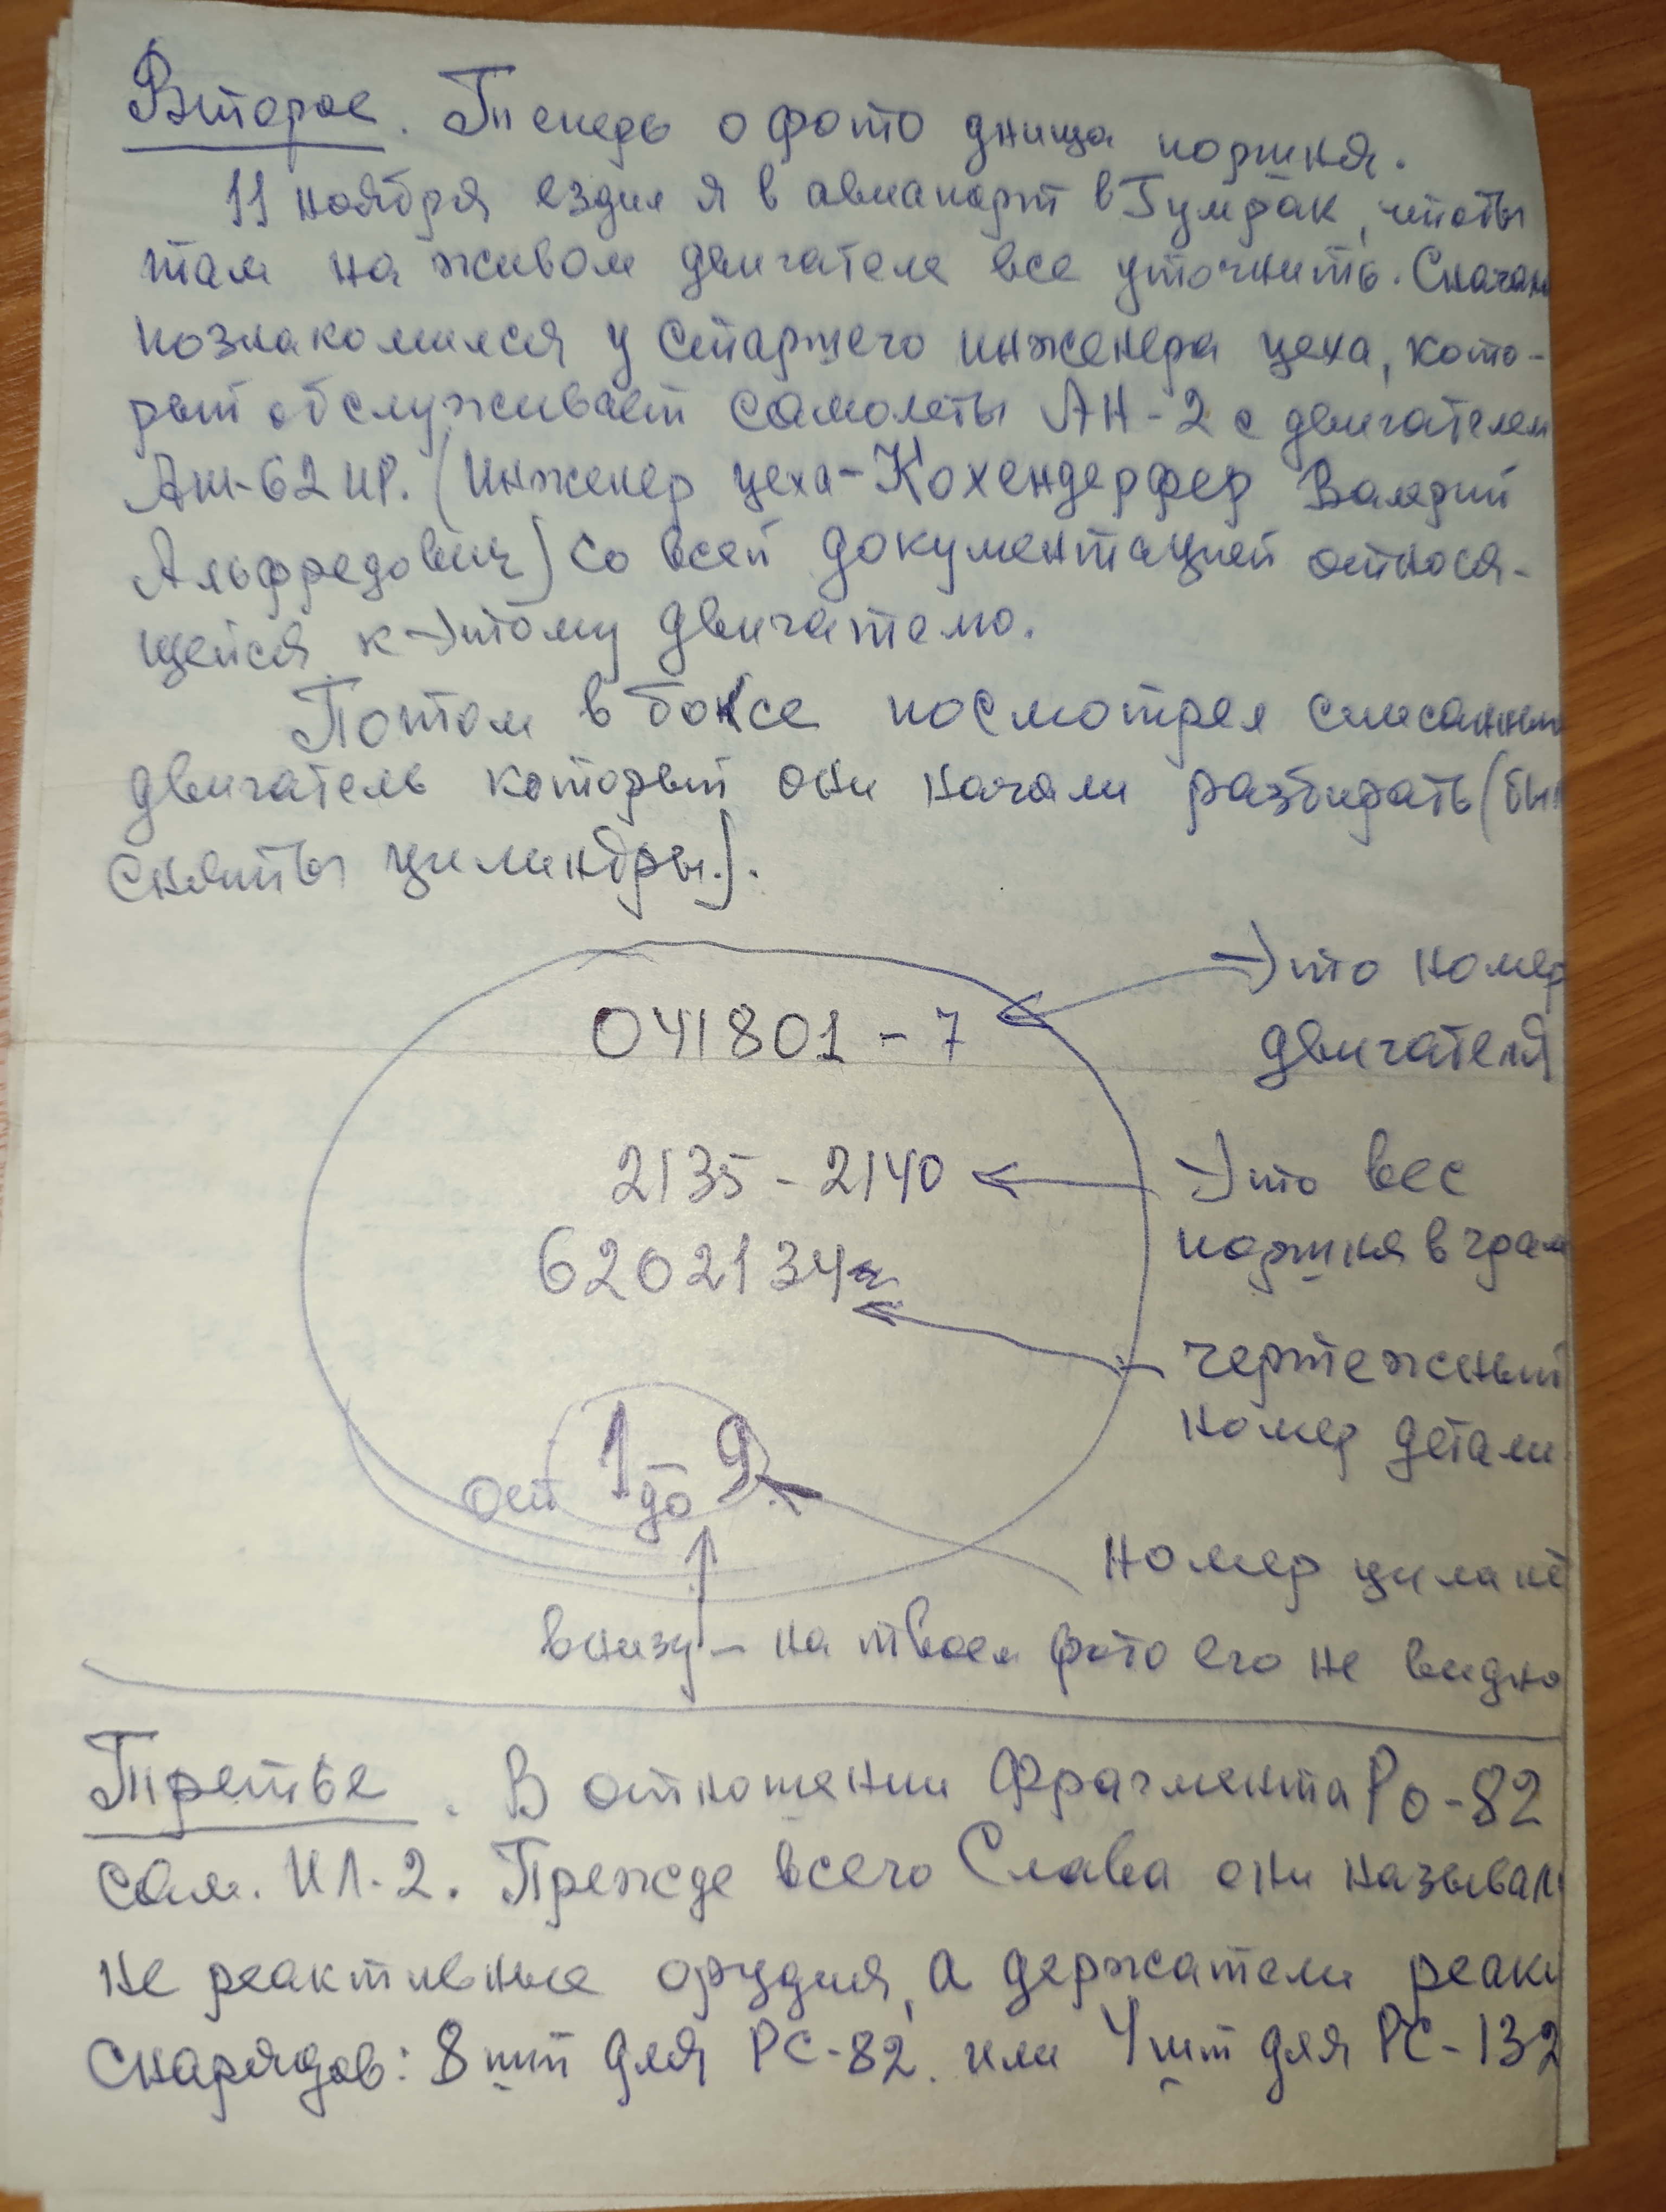 Второе. Теперь о фото днища поршня.
11 ноября ездил я в авиапорт в Гумрак, чтобы
там на живом двигателе все уточнить. Сначала
познакомился у старшего инженера цеха, кото-
рый обслуживает самолеты АН-2 с двигателем
Аш-62 ИР. (Инженер цеха - Кохендерфер Валерий
Альфредович) со всей документацией относя-
щейся к этому двигателю.
Потом в боксе посмотрел списанный
двигатель который они начали разбирать (был
сняты цилиндры).
Это номер
041801 - 7
двигателя
2135 - 2140
Это вес
поршня в грам
6202134
чертежный
номер детали
от 1 до 9
номер цилинд
внизу - на твоем фото его не видно
Третье. В отношении фрагмента Ро-82
сам. ИЛ-2. Прежде всего Слава они называли
не реактивные орудия, а держатели реакт
снарядов: 8 шт для РС-82 или 4 шт для РС-132